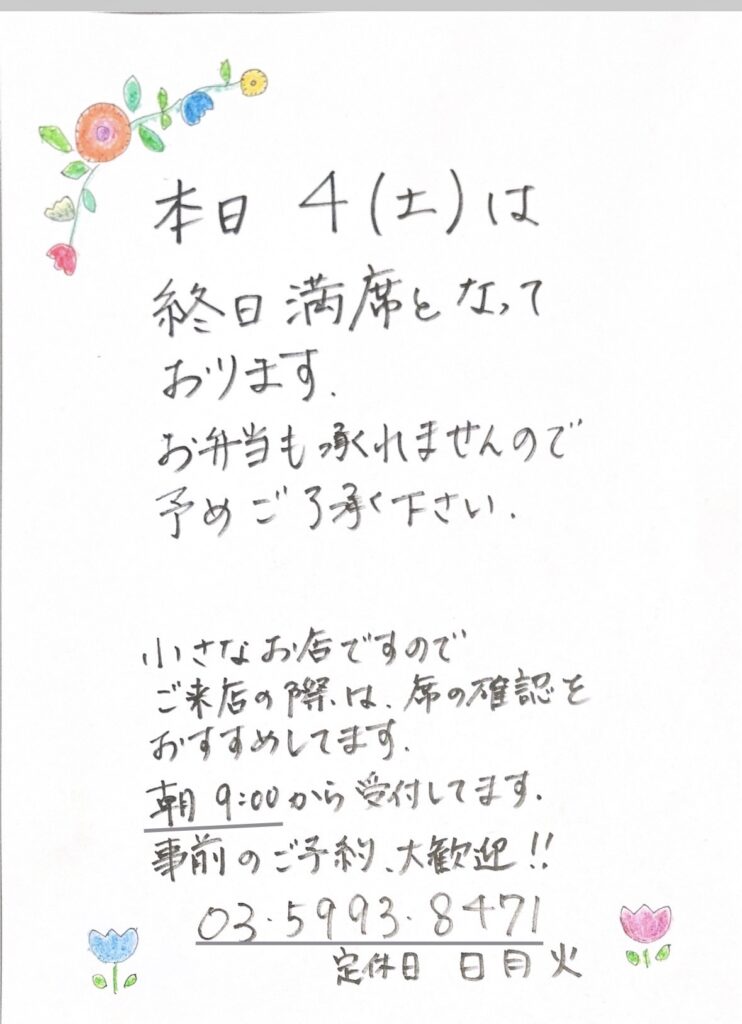 本日 4(土)は
終日満席となって
おります.
お弁当も承れませんので
予めご了承く下さい.
小さなお店ですので
ご来店の際は、席の確認を
おすすめしてます.
朝 9:00から受付してます.
事前のご予約、大歓迎!!
03.5993.8471
定休日 日月火